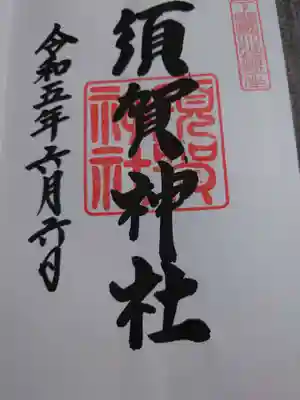 須賀神社
令和五年六月六日
須賀
神社